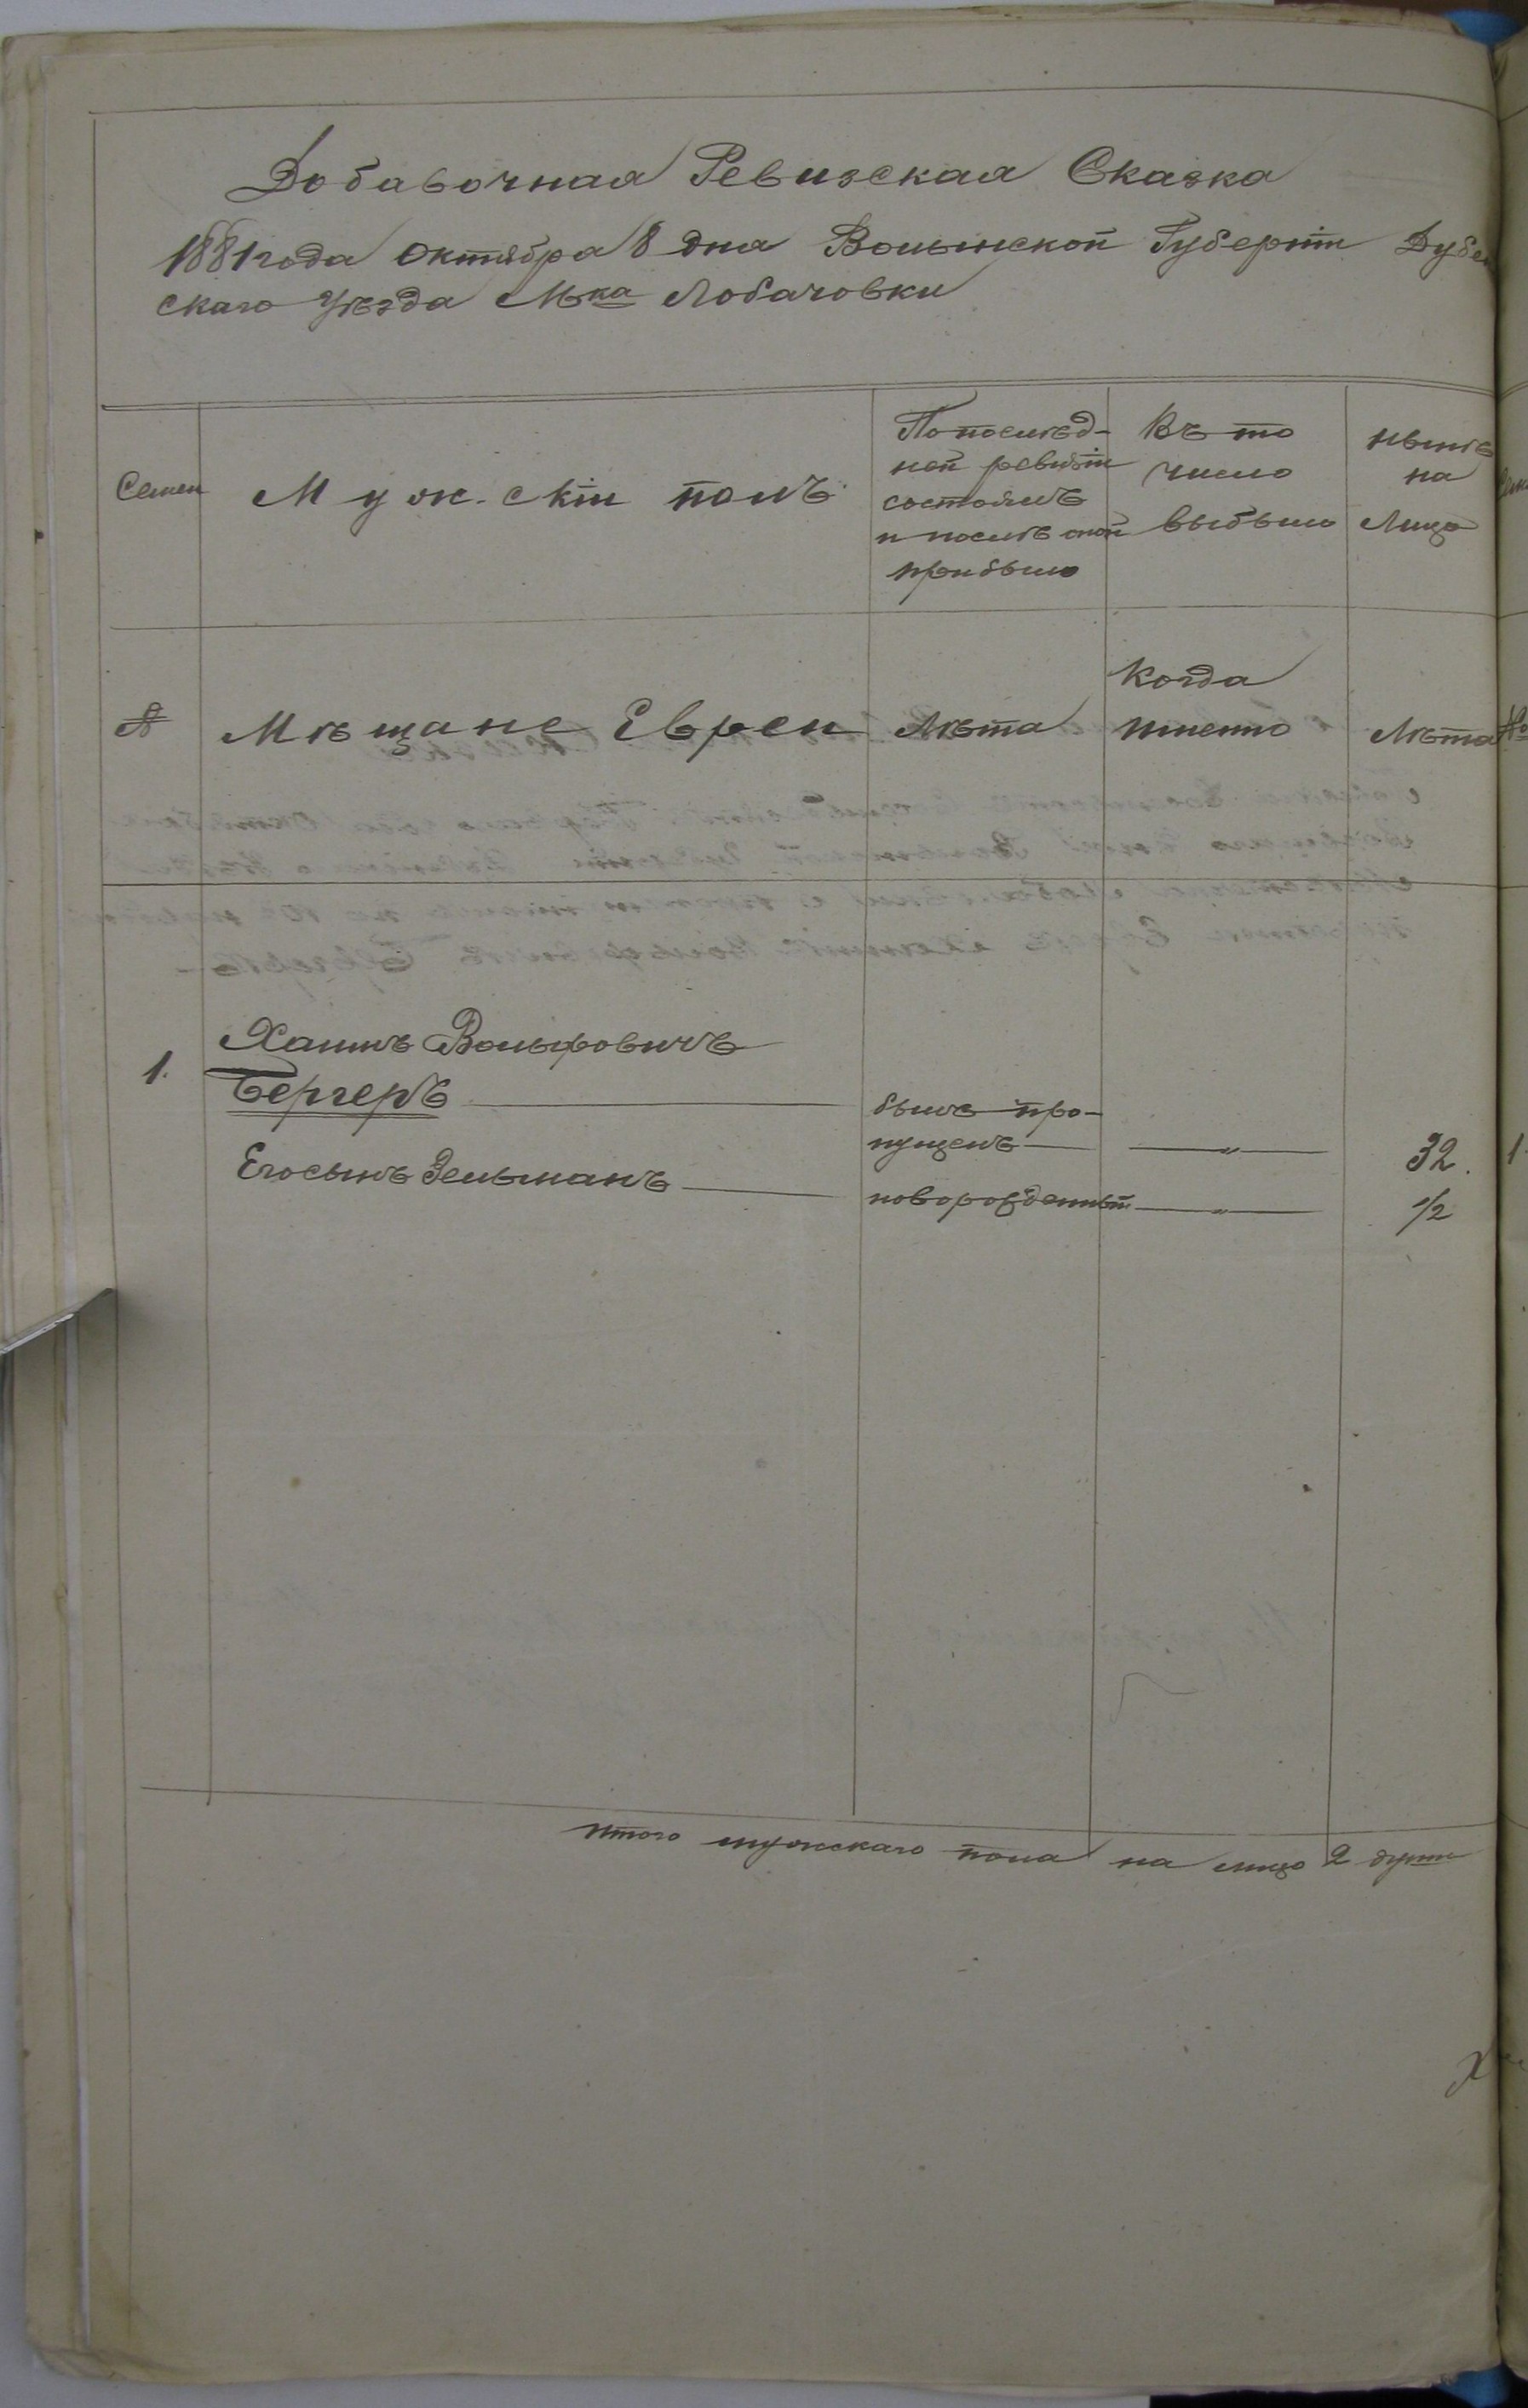 Добавочная Ревизская Сказка
1881 года Октября 8 дня Волынской Губерніи Дубен
скаго Уѣзда М-ка Лобачовки
Семеи
Мужскій полъ
По послѣд-
ней ревизіи
состоялъ
и послѣ оной
прибыло
Въ то
число
выбыло
нынѣ
на
Лицо
№
Мѣщане Евреи
Лѣта
Когда
именно
Лѣта
№
1.
Хаимъ Вольфовичъ
Бергеръ
былъ про-
пущенъ
"
32.
1
Его сынъ Зельманъ
новорожденный
"
1/2
Итого мужскаго пола на лицо 2 души